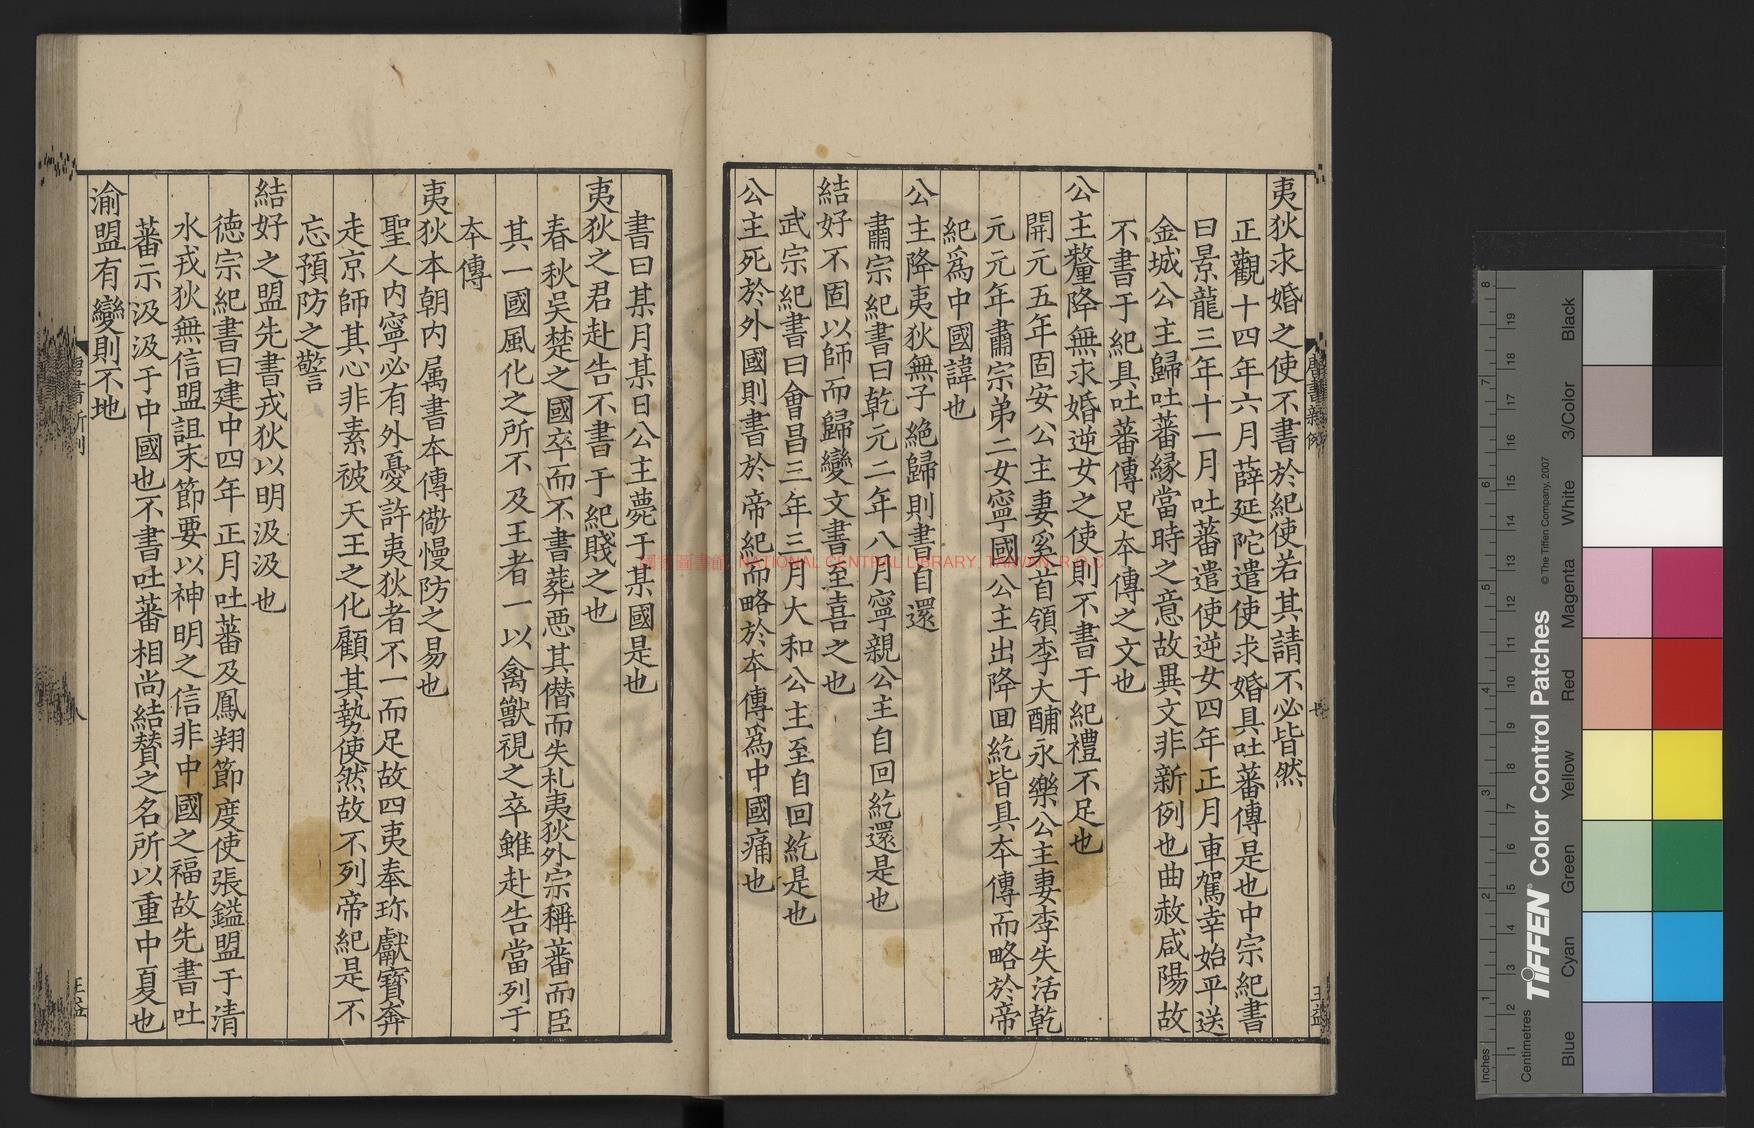 夷狄求婚之使不書於紀使若其請不必皆然
正觀十四年六月薛延陀遣使求婚具吐蕃傳是也中宗紀書
曰景龍三年十一月吐蕃遣使逆女四年正月車駕幸始平送
金城公主歸吐蕃緣當時之意故異文非新例也曲赦咸陽故
不書于紀具吐蕃傳足本傳之文也
公主釐降無求婚逆女之使則不書于紀禮不足也
開元五年固安公主妻奚首領李大酺永樂公主妻李失活乾
元元年肅宗弟二女寧國公主出降回紇皆具本傳而略於帝
紀爲中國諱也
公主降夷狄無子絶歸則書自還
肅宗紀書曰乾元二年八月寧親公主自回紇還是也
結好不固以師而歸變文書至喜之也
武宗紀書曰會昌三年三月大和公主至自回紇是也
公主死於外國則書於帝紀而略於本傳爲中國痛也
書曰某月某日公主薨于某國是也
夷狄之君赴告不書于紀賤之也
春秋吳楚之國卒而不書葬惡其僭而失礼夷狄外宗稱蕃而臣
其一國風化之所不及王者一以禽獸視之卒雖赴告當列于
本傳
夷狄本朝内属書本傳衞慢防之易也
聖人内寧必有外憂許夷狄者不一而足故四夷奉珎獻寳奔
走京師其心非素被天王之化顧其勢使然故不列帝紀是不
忘預防之警
結好之盟先書戎狄以明汲汲也
德宗紀書曰建中四年正月吐蕃及鳳翔節度使張鎰盟于清
水戎狄無信盟詛末節要以神明之信非中國之福故先書吐
蕃示汲汲于中國也不書吐蕃相尚結賛之名所以重中夏也
渝盟有變則不地
唐書新例
七
王益
唐書新例
八
王益
國家圖書館, NATIONAL CENTRAL LIBRARY, TAIWAN, R.O.C
Inches
Centimetres
TIFFEN® Color Control Patches
© The Tiffen Company, 2007
Blue
Cyan
Green
Yellow
Red
Magenta
White
3/Color
Black